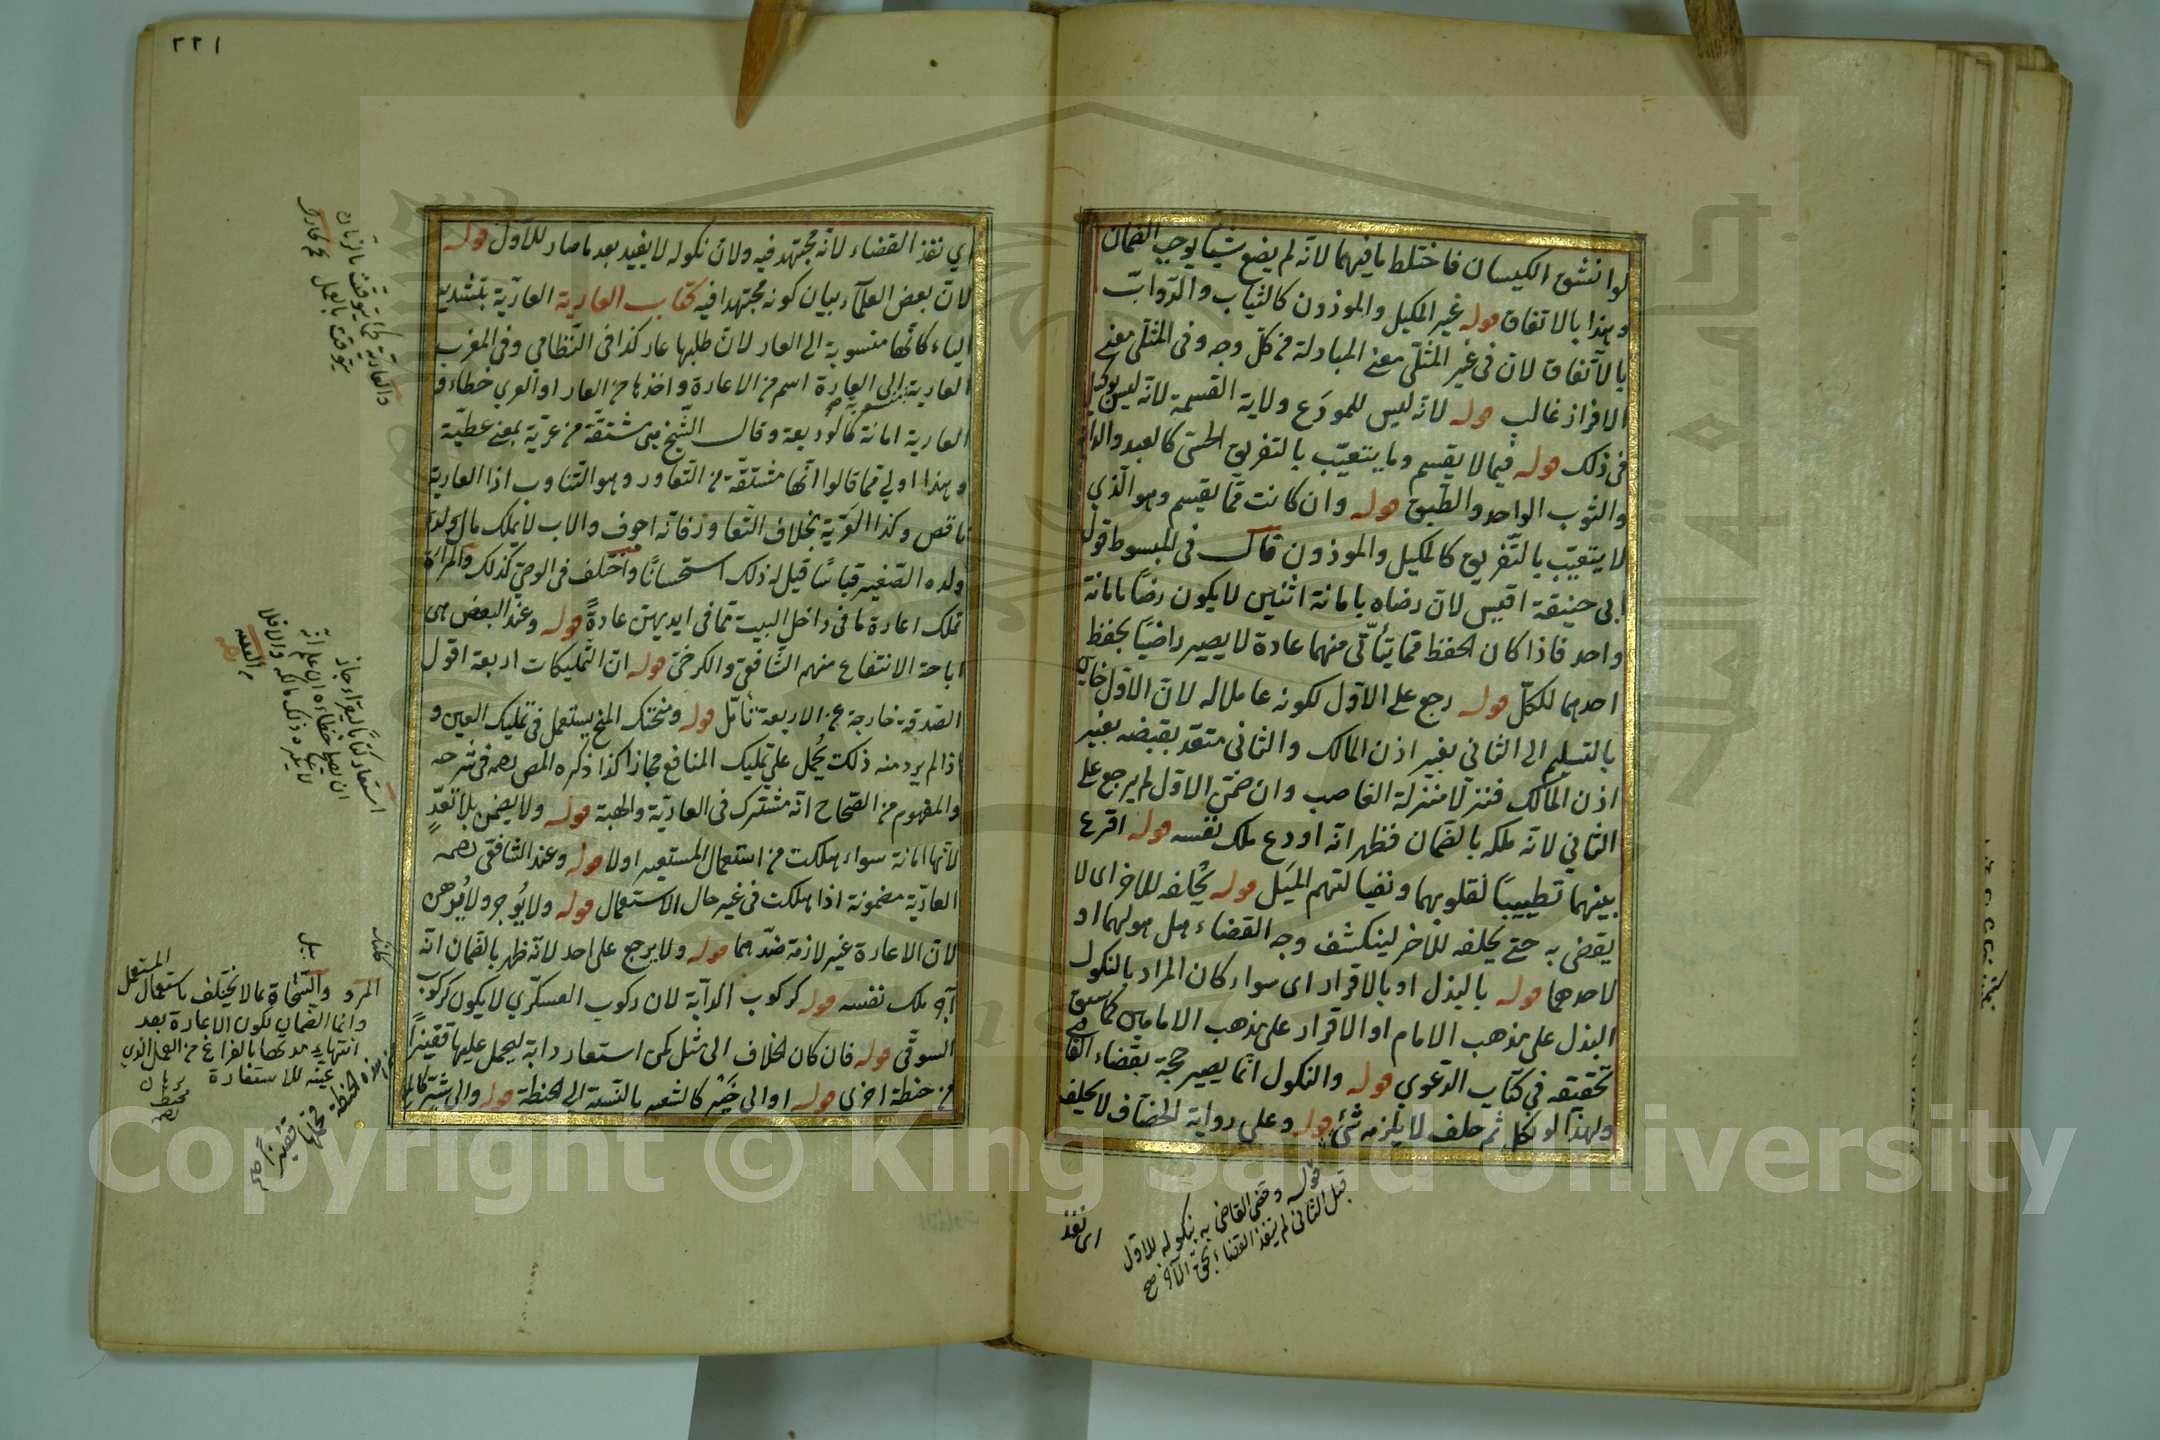 لو انشق الكيسان فاختلط ما فيهما لانه لم يضع شيئا يوجب الضمان
وهذا بالاتفاق قوله غير المكيل والموزون كالثياب والدواب
بالاتفاق لان فى غير المثلى معنى المبادلة من كل وجه وفى المثلى معنى
الافراز غالب قوله لانه ليس للمودع ولاية القسمة لانه ليس بوكيل
فى ذلك قوله فيما لا يقسم وما يتعيب بالتفريق الحسى كالعبد
والثوب الواحد والطبق قوله وان كانت مما يقسم وهو الذي
لا يتعيب بالتفريق كالمكيل والموزون قال فى المبسوط قول
ابى حنيفة اقيس لان رضاه بامانة اثنين لا يكون رضا بامانة
واحد فاذا كان الحفظ مما يتأتى منهما عادة لا يصير راضيا بحفظ
احدهما للكل قوله رجع على الاول لكونه عاملا له لان الاول خاين
بالتسليم الى الثانى بغير اذن المالك والثانى متعد بقبضه بغير
اذن المالك فنزلا منزلة الغاصب وان ضمن الاول لم يرجع على
الثاني لانه ملكه بالضمان فظهر انه اودع ملك نفسه قوله اقرع
بينهما تطييبا لقلوبهما ونفيا لتهم الميل قوله يحلفه للاخر اى لا
يقضى به حتى يحلفه للاخر لينكشف وجه القضاء هل هو لهما او
لاحدهما قوله بالبذل او بالاقرار اى سواء كان المراد بالنكول
البذل على مذهب الامام او الاقرار على مذهب الامامين كما سبق
تحقيقه في كتاب الدعوي قوله والنكول انما يصير حجة بقضاء القاضى
ولهذا لو نكل ثم حلف لا يلزمه شئ قوله وعلى رواية الخصاف لا يحلفه
قوله وقضى القاضى به بنكوله للاول
قبل الثانى لم ينفذ القضاء
اى نفذ
٢٢١
اي نفذ القضاء لانه مجتهد فيه ولان نكوله لا يفيد بعد ما صار للاول قوله
لان بعض العلماء بيان كونه مجتهدا فيه كتاب العارية العارية بتشديد
الياء كانها منسوبة الى العار لان طلبها عار كذا فى النظامي وفى المغرب
العارية اسم من الاعارة واخذها من العار او العري خطاء و
العارية امانة كالوديعة وقال الشيخ هى مشتقة من عرية بمعنى عطية
وهذا اولى مما قالوا انها مشتقة من التعاور وهو التناوب اذا العارية
ناقص وكذا العرية بخلاف التعاور فانه اجوف والاب لا يملك مال ولده
ولده الصغير قياسا قيل له ذلك استحسانا واختلف فى الوصي كذلك والمراة
تملك اعارة ما فى داخل البيت مما فى ايديهن عادة قوله وعند البعض هى
اباحة الانتفاع منهم الشافعى والكرخى قوله ان التمليكات اربعة اقول
الصدقة خارجة عن الاربعة تأمل قوله ومنحتك المنح يستعمل فى تمليك العين و
اذا لم يرد منه ذلك يحمل على تمليك المنافع مجازا كذا ذكره المص رحمه فى شرحه
والمفهوم من الصحاح انه مشترك فى العارية والهبة قوله ولا يضمن بلا تعد
لانها امانة سواء هلكت من استعمال المستعير او لا قوله وعند الشافعى رحمه
العارية مضمونة اذا هلكت فى غير حال الاستعمال قوله ولا يوجر ولا يرهن
لان الاعارة غير لازمة ضدهما قوله ولا يرجع على احد لانه ظهر بالضمان انه
آجر ملك نفسه قوله كركوب الدابة لان ركوب العسكري لا يكون كركوب
السوقى قوله فان كان الخلاف الى مثل كمن استعار دابة ليحمل عليها قفيزا
من حنطة اخرى قوله او الى خير كالشعير بالنسبة الى الحنطة قوله والى شر
والعارية كما يتوقت بالزمان
يتوقت بالعمل
استعار كتابا ليقرأ جاز
ان يصلح خطاءه ان علم انه
لا يكره ذلك مالكه والا فلا
المر و والشحاذة مما لا يختلف باستعمال المستعمل
وانما الضمان لكون الاعارة بعد
انتهاء مدتها بالفراغ من العمل الذي
عينه للاستعارة
Copyright © King Saud University